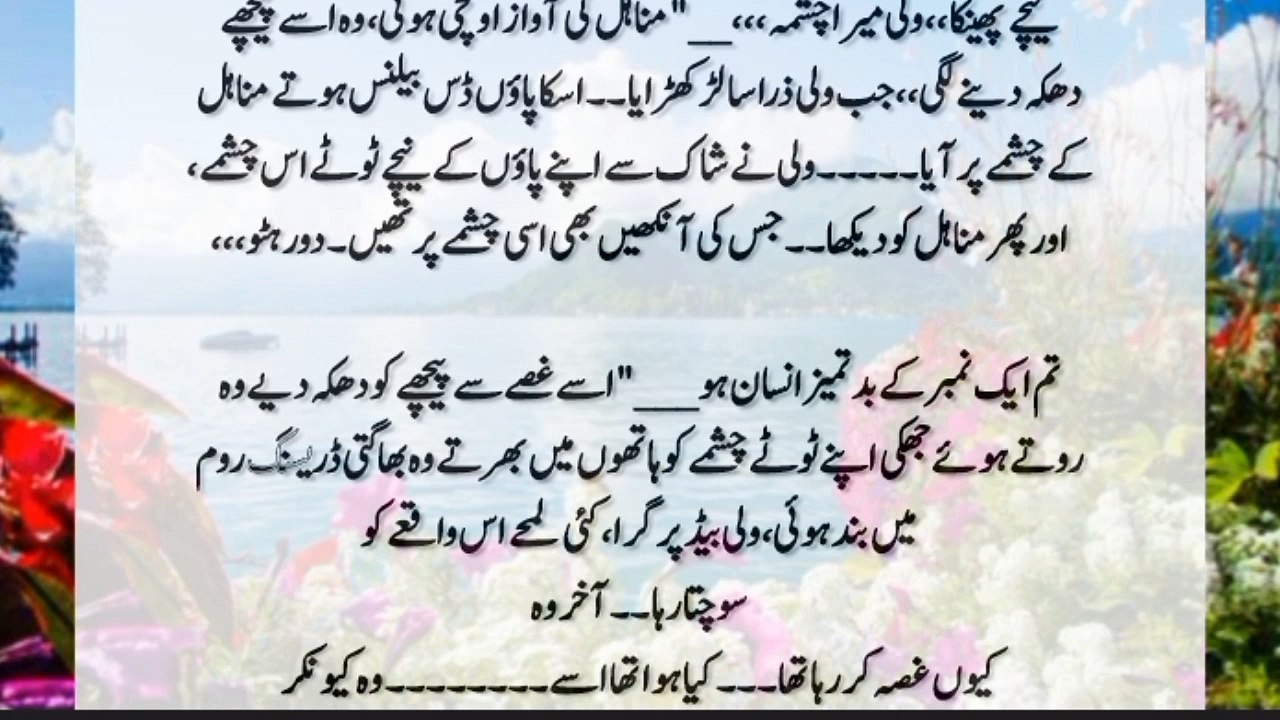 نیچے پھینکا،،ولی میرا چشمہ،،،،__" مناہل کی آواز اونچی ہوئی،وہ اسے پیچھے
دھکہ دینے لگی،،جب ولی ذرا سا لڑکھڑایا۔۔اسکا پاؤں ڈس بیلنس ہوتے مناہل
کے چشمے پر آیا۔۔۔۔۔ولی نے شاک سے اپنے پاؤں کے نیچے ٹوٹے اس چشمے،
اور پھر مناہل کو دیکھا۔۔ جس کی آنکھیں بھی اسی چشمے پر تھیں۔دور ہٹو،،،،
تم ایک نمبر کے بد تمیز انسان ہو___"اسے غصے سے پیچھے کو دھکہ دیے وہ
روتے ہوئے جھکی اپنے ٹوٹے چشمے کو ہاتھوں میں بھرتے وہ بھاگتی ڈریسنگ روم
میں بند ہوئی،ولی بیڈ پر گرا، کئی لمحے اس واقعے کو
سوچتا رہا۔۔ آخر وہ
کیوں غصہ کر رہا تھا۔۔۔ کیا ہوا تھا اسے۔۔۔۔۔۔۔۔وہ کیونکر